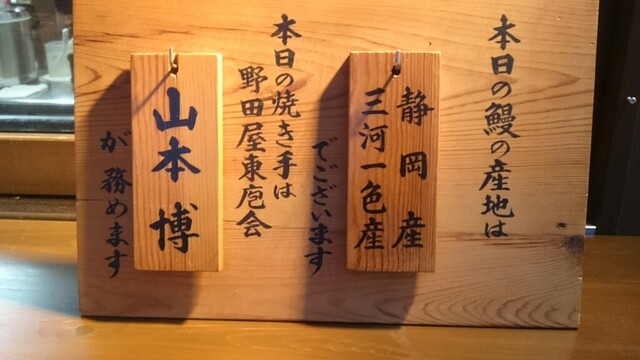 本日の鰻の産地は
静岡産
三河一色産
でございます
本日の焼き手は
野田屋東庖会
山本博
が務めます